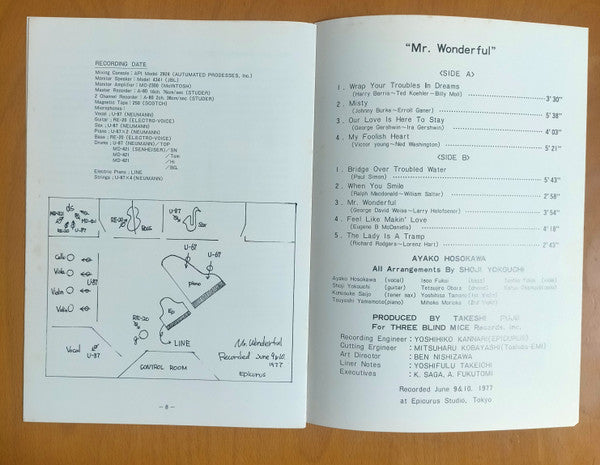 RECORDING DATE
Mixing Console : API Model 2824 (AUTOMATED PROSESSES, Inc.)
Monitor Speaker : Model 4341 (JBL)
Monitor Amplifier : MC-2300 (McINTOSH)
Master Recorder : A-80 16ch 76cm/sec (STUDER)
2 Channel Recorder : A-80 2ch 38cm/sec (STUDER)
Magnetic Tape : 250 (SCOTCH)
Microphones :
Vocal : U-87 (NEUMANN)
Guitar : RE-20 (ELECTRO-VOICE)
Sax : U-87 (NEUMANN)
Piano : U-67×2 (NEUMANN)
Bass : RE-20 (ELECTRO-VOICE)
Drums : U-87 (NEUMANN)/TOP
MD-421 (SENHEISER)/SN
MD-421 /Tom
MD-421 /Hi
/BG
Electric Piano : LINE
Strings : U-87×4 (NEUMANN)
ds
U-87
MD-421
RE-20
Bass
U-87
U-67
U-67
Cello
Viola
Violin
Violin
U-87
piano
Ep
RE-20
g
LINE
Vocal
U-87
CONTROL ROOM
Mr. Wonderful
Recorded June 9&10.
1977
Epicurus
— 8 —
"Mr. Wonderful"
〈SIDE A〉
1 . Wrap Your Troubles In Dreams
(Harry Barris~Ted Koehler~Billy Moll) 3'30"
2 . Misty
(Johnny Burke~Erroll Ganer) 5'38"
3 . Our Love Is Here To Stay
(George Gershwin~Ira Gershwin) 4'03"
4 . My Foolish Heart
(Victor young~Ned Washington) 5'21"
〈SIDE B〉
1 . Bridge Over Troubled Water
(Paul Simon) 5'43"
2 . When You Smile
(Ralph Macdonald~William Salter) 2'58"
3 . Mr. Wonderful
(George David Weiss~Larry Holofcener) 3'54"
4 . Feel Like Makin' Love
(Eugene B McDaniels) 4'18"
5 . The Lady Is A Tramp
(Richard Rodgers~Lorenz Hart) 2'43"
AYAKO HOSOKAWA
All Arrangements By SHOJI YOKOUCHI
Ayako Hosokawa (vocal) Isoo Fukui (bass)
Shoji Yokouchi (guitar) Tetsujiro Obara (drums)
Kunisuke Saijo (tenor sax) Yoshihisa Tamano (1st Vla)
Tsuyoshi Yamamoto (piano) Mihoko Morioka (2rd Vla)
PRODUCED BY TAKESHI FUJII
For THREE BLIND MICE Records, Inc.
Recording Engineer : YOSHIHIKO KANNARI (EPICURUS)
Cutting Engineer : MITSUHARU KOBAYASHI (Toshiba-EMI)
Art Director : BEN NISHIZAWA
Liner Notes : YOSHIFULU TAKEICHI
Executives : K. SAGA, A. FUKUTOMI
Recorded June 9&10, 1977
at Epicurus Studio, Tokyo